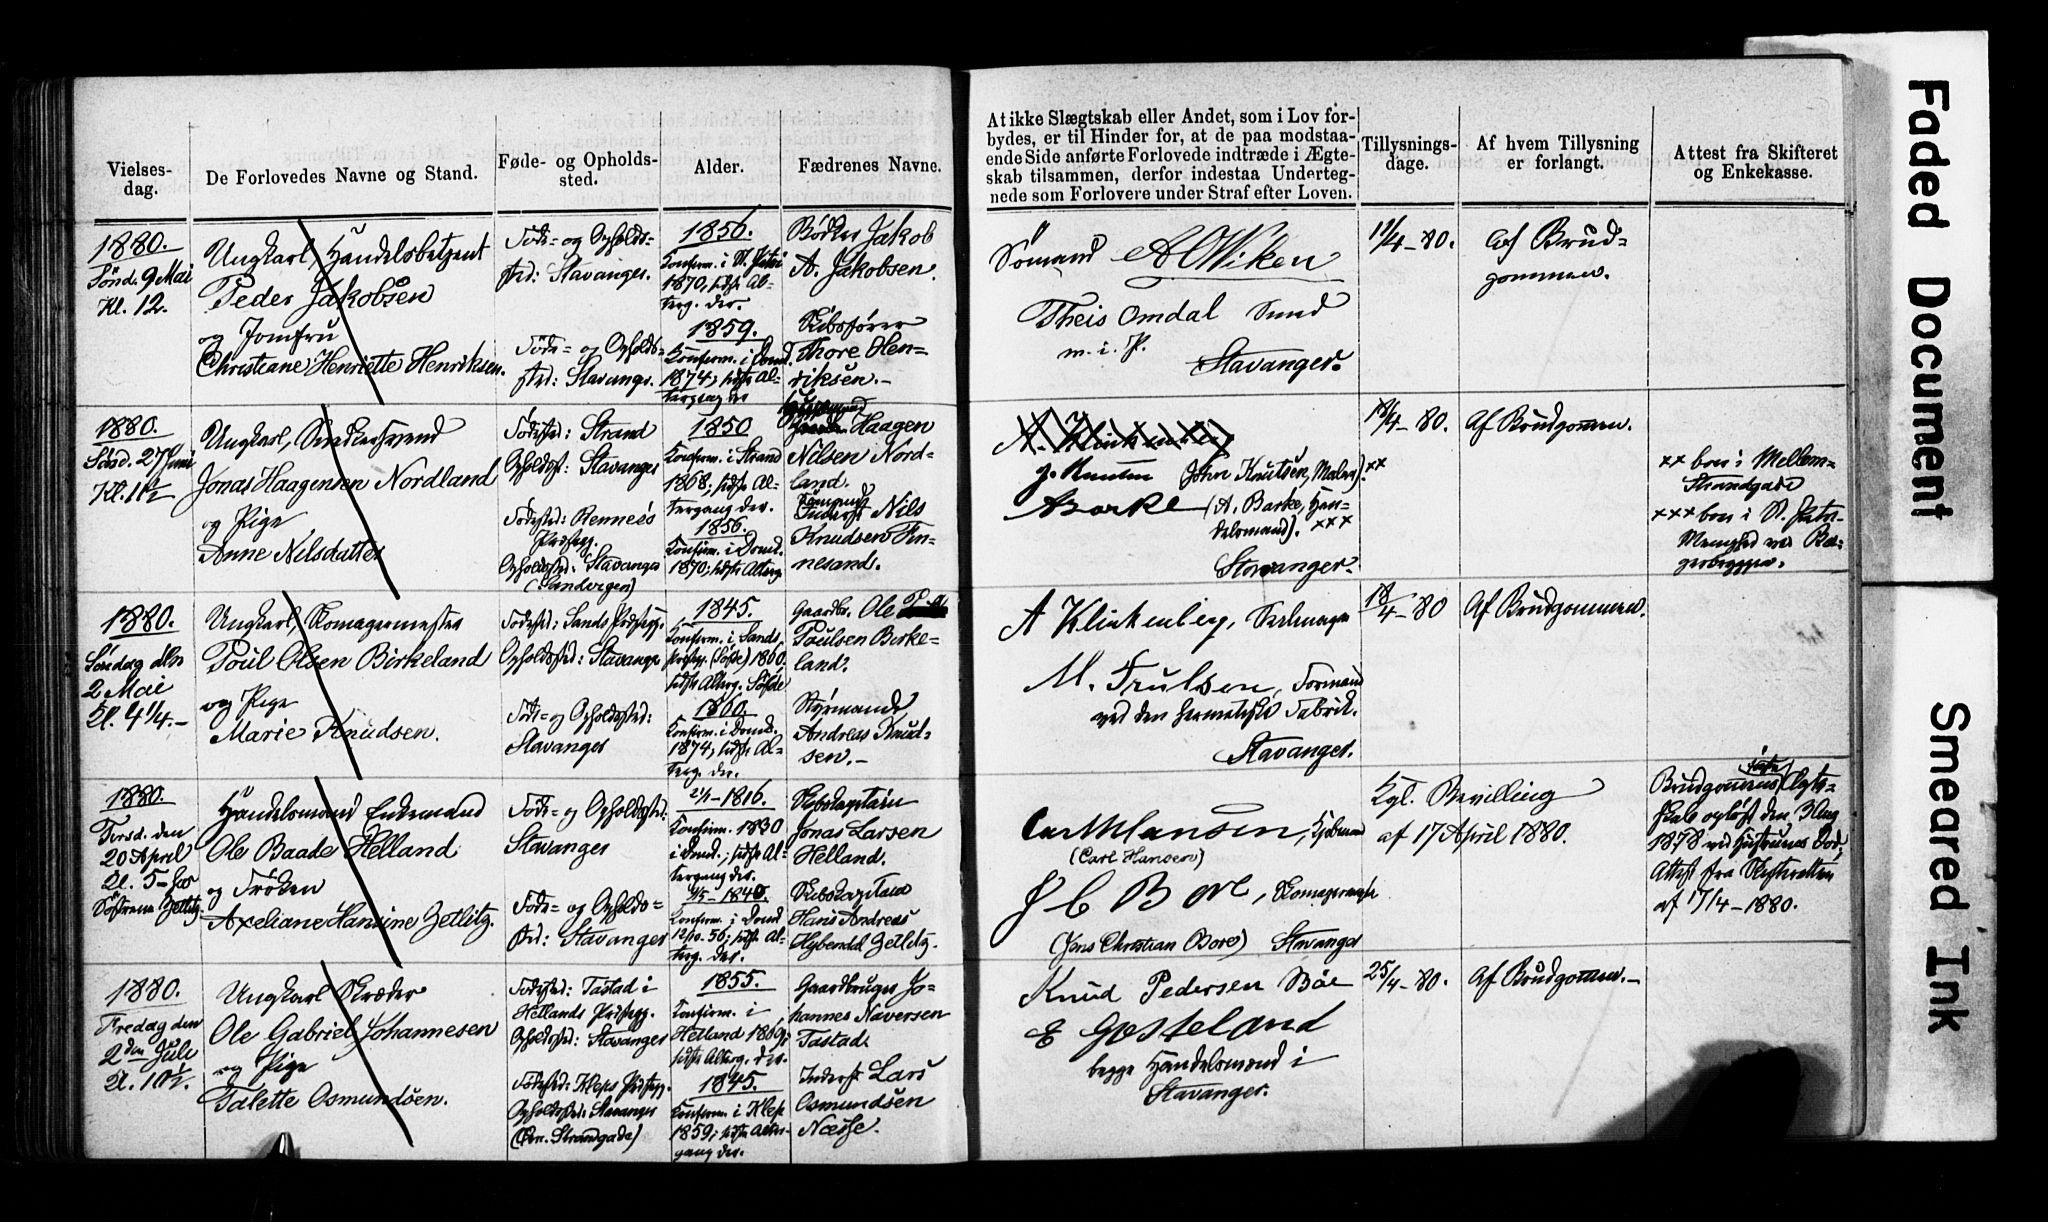 Vielses-
dag.
De Forlovedes Navne og Stand.
Føde- og Opholds-
sted.
Alder.
Fædrenes Navne.
1880.
Sönd. 9 Mai
Kl. 12.
Ungkarl, Handelsbetjent
Peder Jakobsen
og Jomfru
Christiane Henriette Henriksen.
Føde- og Opholds-
sted: Stavanger.
Føde- og Opholds-
sted: Stavanger.
1856.
Konfirm. i St. Petri
1870, sidste Al-
terg. der.
1859.
Konfirm. i Domk.
1874; sidste Al-
tergang der
Bödker Jakob
A. Jakobsen.
Skibsfører
Thore Hen-
riksen.-
1880.
Sönd. 27 Juni
Kl. 11½
Ungkarl,
Jonas Haagensen Nordland
og Pige
Anne Nilsdatter
Fødested: Strand
Opholdsst: Stavanger
Fødested: Rennesö
Præstegj.
Opholdssted: Stavanger
(Sandvigen)
1850
Konfirm. i Strand
1868; sidste Al-
tergang der.
1856.
Konfirm. i Domk.
1870; sidste Alterg.
Haagen
Nilsen Nord-
land.
Nils
Knudsen Fin-
nesand.
1880.
Søndag den
2 Mai
Kl. 4¼.-
Ungkarl, Skomagermester
Poul Olsen Birkeland
og Pige
Marie Knudsen.
Fødested: Sands Præstegj.
Opholdssted: Stavanger
Føde- og Opholdssted:
Stavanger
1845.
Konfirm. i Sands
Præstegj. 1860.
sidste Alterg.
1860.
Konfirm. i Domk.
1874; sidste Al-
terg. der.
Gaardbr. Ole
Poulsen Birke-
land.
Styrmand
Andreas Knud-
sen.-
1880.
Tirsd. den
20 April
Kl. 5- hos
Zetlitz.
Handelsmand Enkemand
Ole Baade Helland
og Frøken
Axeliane Hansine Zetlitz.
Føde- og Opholdssted:
Stavanger
Føde- og Opholds-
sted: Stavanger
2/1-1816.
Konfirm. 1830
i Domk.; sidste Al-
tergang der.
Konfirm. i Domk.
12/10-56; sidste Al-
terg. der.
Skibskaptain
Jonas Larsen
Helland.
Skibskaptain
Hans Andreas
Zetlitz.
1880.
Fredag den
2den Juli
Kl. 10½.
Ungkarl Skræder
Ole Gabriel Johannesen
og Pige
Talette Osmundsen.
Fødested: Tastad i
Hetlands Præstegj.
Opholdssted: Stavanger
Fødested: Kleps Præstegj.
Opholdssted: Stavanger
(Øvr. Strandgade)
1855.
Konfirm. i
Hetland 1869;
sidste Alterg. der.
1845.
Konfirm. i Klep
1859; sidste Alter-
gang der.
Gaardbruger Jo-
hannes Naversen
Tastad.
Inderst Lars
Osmundsen
Næsse.
At ikke Slægtskab eller Andet, som i Lov for-
bydes, er til Hinder for, at de paa modstaa-
ende Side anførte Forlovede indtræde i Ægte-
skab tilsammen, derfor indestaa Underteg-
nede som Forlovere under Straf efter Loven.
Tillysnings-
dage.
Af hvem Tillysning
er forlangt.
Attest fra Skifteret
og Enkekasse.
Sömand A O Viken
Theis Omdal Smed
m. i. P.
Stavanger.
11/4-80.
Af Brud-
gommen.
A. Klinkenberg
J. Knutsen (John Knutsen, Maler) xx
A Barke (A. Barke, Han-
delsmand). xxx
Stavanger.
18/4-80.
Af Brudgommen.
xx bor i Mellem-
Strandgade
xxx bor i St. Petri
Menighed ved Ba-
A Klinkenberg,
M. Trulsen, Formand
ved den hermetiske Fabrik.
Stavanger.
18/4-80
Af Brudgommen.
Carl M Hansen, Kjöbmand
(Carl Hansen)
J C Bore, Skomagermester
(Jens Christian Bore) Stavanger
Kgl. Bevilling
af 17 April 1880.
Brudgommens første Ægte-
skab opløst den 3 Aug
1878 ved Hustruens Død.
Attest fra Skifteretten
af 17/4-1880.
Knud Pedersen Böe
E Gjesteland
begge Handelsmænd i
Stavanger.
25/4-80.
Af Brudgommen.-
Faded Document
Smeared Ink